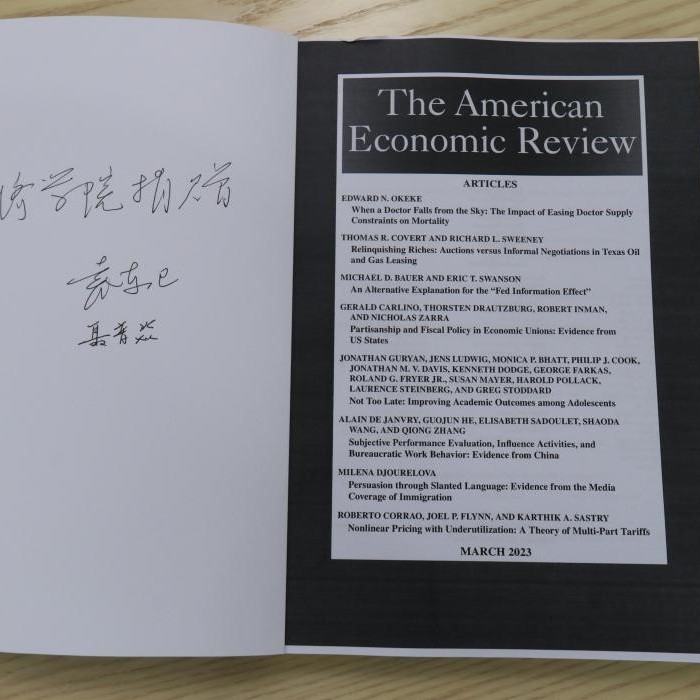 学院捐赠
袁东
聂
The American
Economic Review
ARTICLES
EDWARD N. OKEKE
When a Doctor Falls from the Sky: The Impact of Easing Doctor Supply
Constraints on Mortality
THOMAS R. COVERT AND RICHARD L. SWEENEY
Relinquishing Riches: Auctions versus Informal Negotiations in Texas Oil
and Gas Leasing
MICHAEL D. BAUER AND ERIC T. SWANSON
An Alternative Explanation for the “Fed Information Effect”
GERALD CARLINO, THORSTEN DRAUTZBURG, ROBERT INMAN,
AND NICHOLAS ZARRA
Partisanship and Fiscal Policy in Economic Unions: Evidence from
US States
JONATHAN GURYAN, JENS LUDWIG, MONICA P. BHATT, PHILIP J. COOK,
JONATHAN M. V. DAVIS, KENNETH DODGE, GEORGE FARKAS,
ROLAND G. FRYER JR., SUSAN MAYER, HAROLD POLLACK,
LAURENCE STEINBERG, AND GREG STODDARD
Not Too Late: Improving Academic Outcomes among Adolescents
ALAIN DE JANVRY, GUOJUN HE, ELISABETH SADOULET, SHAODA
WANG, AND QIONG ZHANG
Subjective Performance Evaluation, Influence Activities, and
Bureaucratic Work Behavior: Evidence from China
MILENA DJOURELOVA
Persuasion through Slanted Language: Evidence from the Media
Coverage of Immigration
ROBERTO CORRAO, JOEL P. FLYNN, AND KARTHIK A. SASTRY
Nonlinear Pricing with Underutilization: A Theory of Multi-Part Tariffs
MARCH 2023